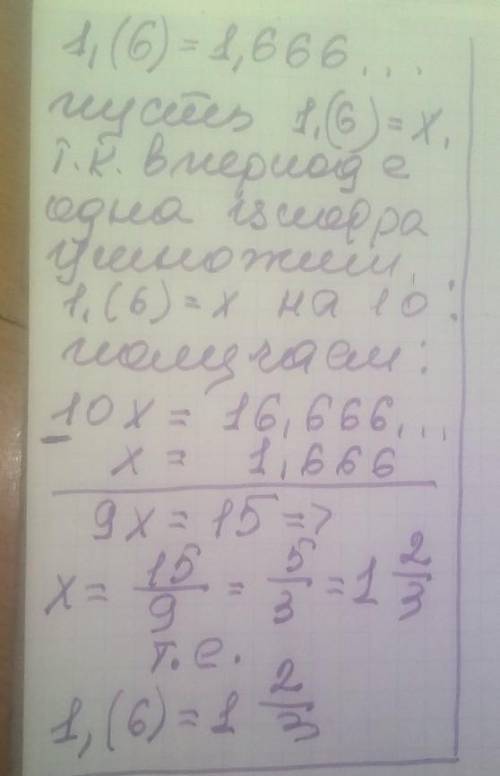 1,(6)=1,666...
пусть 1,(6)=x,
т.к. в период е
одна цифра
умножим
1,(6)=x на 10:
получаем:
10x = 16,666...
x = 1,666
9x = 15 =>
x = 15/9 = 5/3 = 1 2/3
т.е.
1,(6)=1 2/3